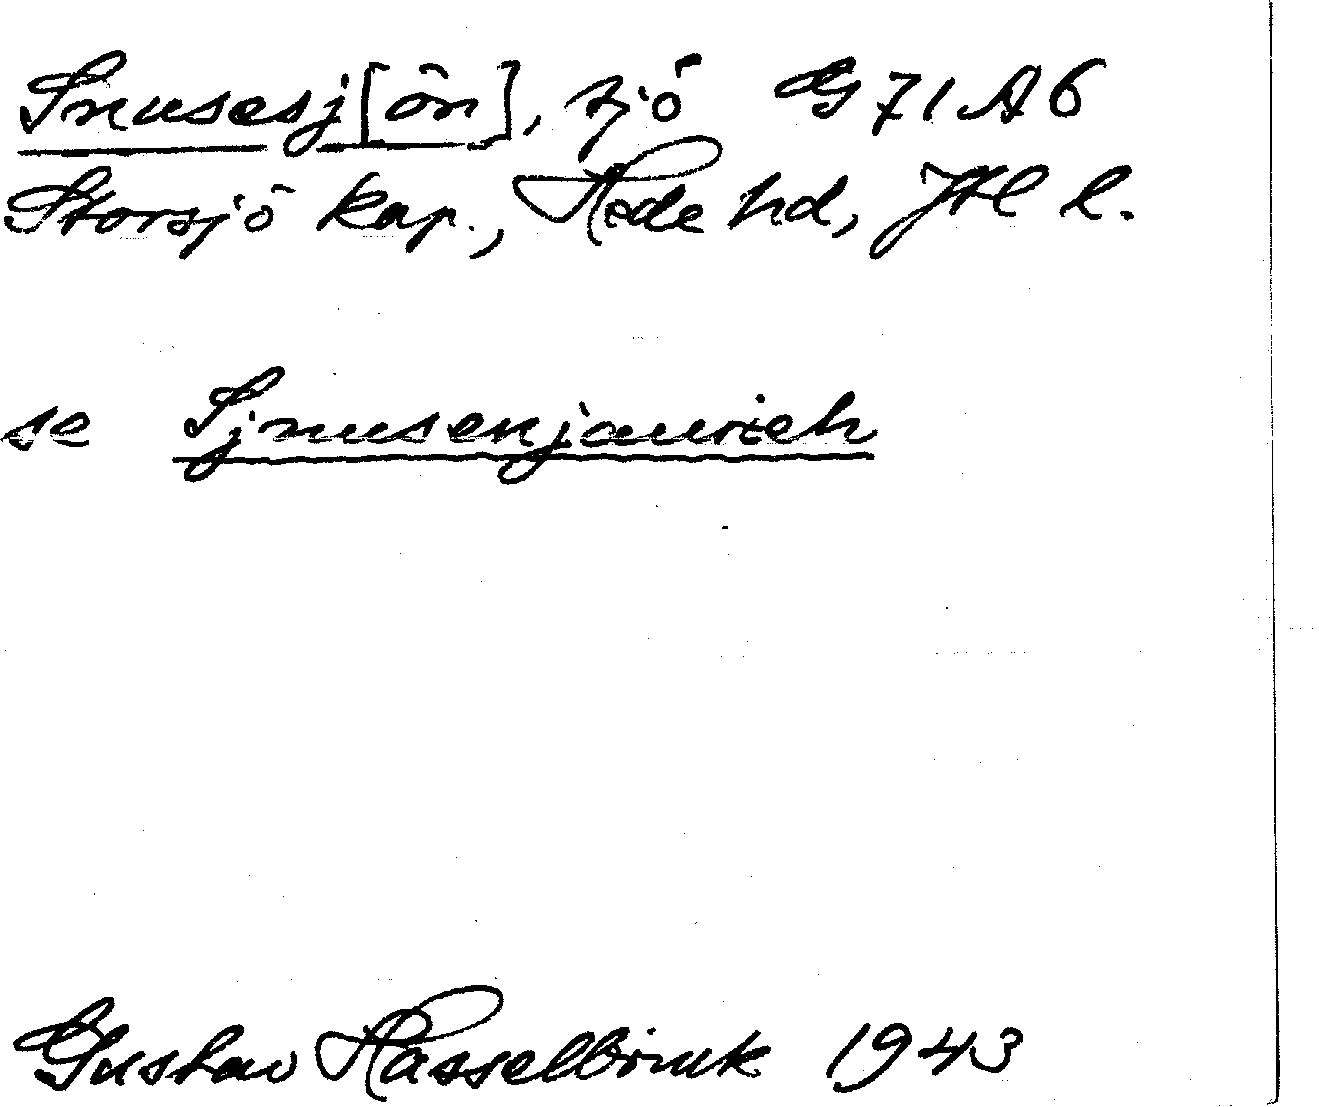 Snusesj[ön], sjö G 71 A 6
Storsjö kap., Hede hd, Jtl l.
se Sjnusenjaurieh
Gustav Hasselbrink 1943